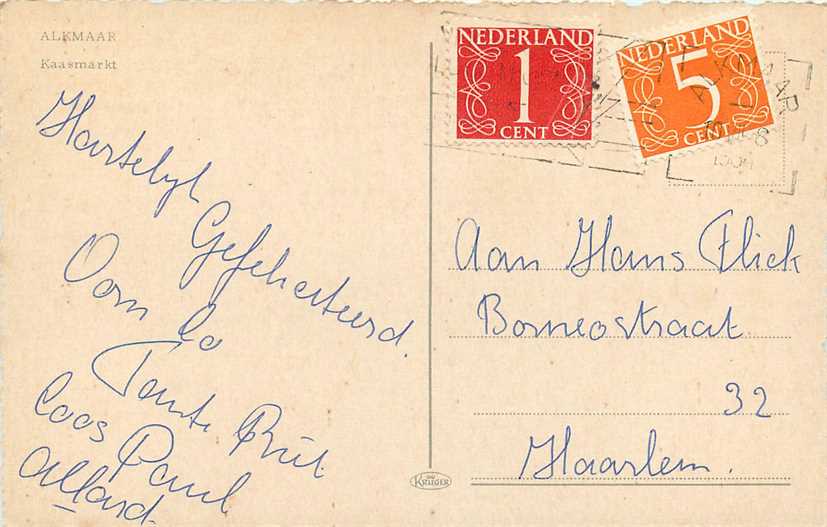 ALKMAAR
Kaasmarkt
Hartelijk
Gefeliciteerd.
Oom Co
Tante Riet
Coos Paul
Allard
NEDERLAND
1
CENT
NEDERLAND
5
CENT
ALKMAAR
Aan Hans Flick
Borneostraat
32
Haarlem.
KRUGER